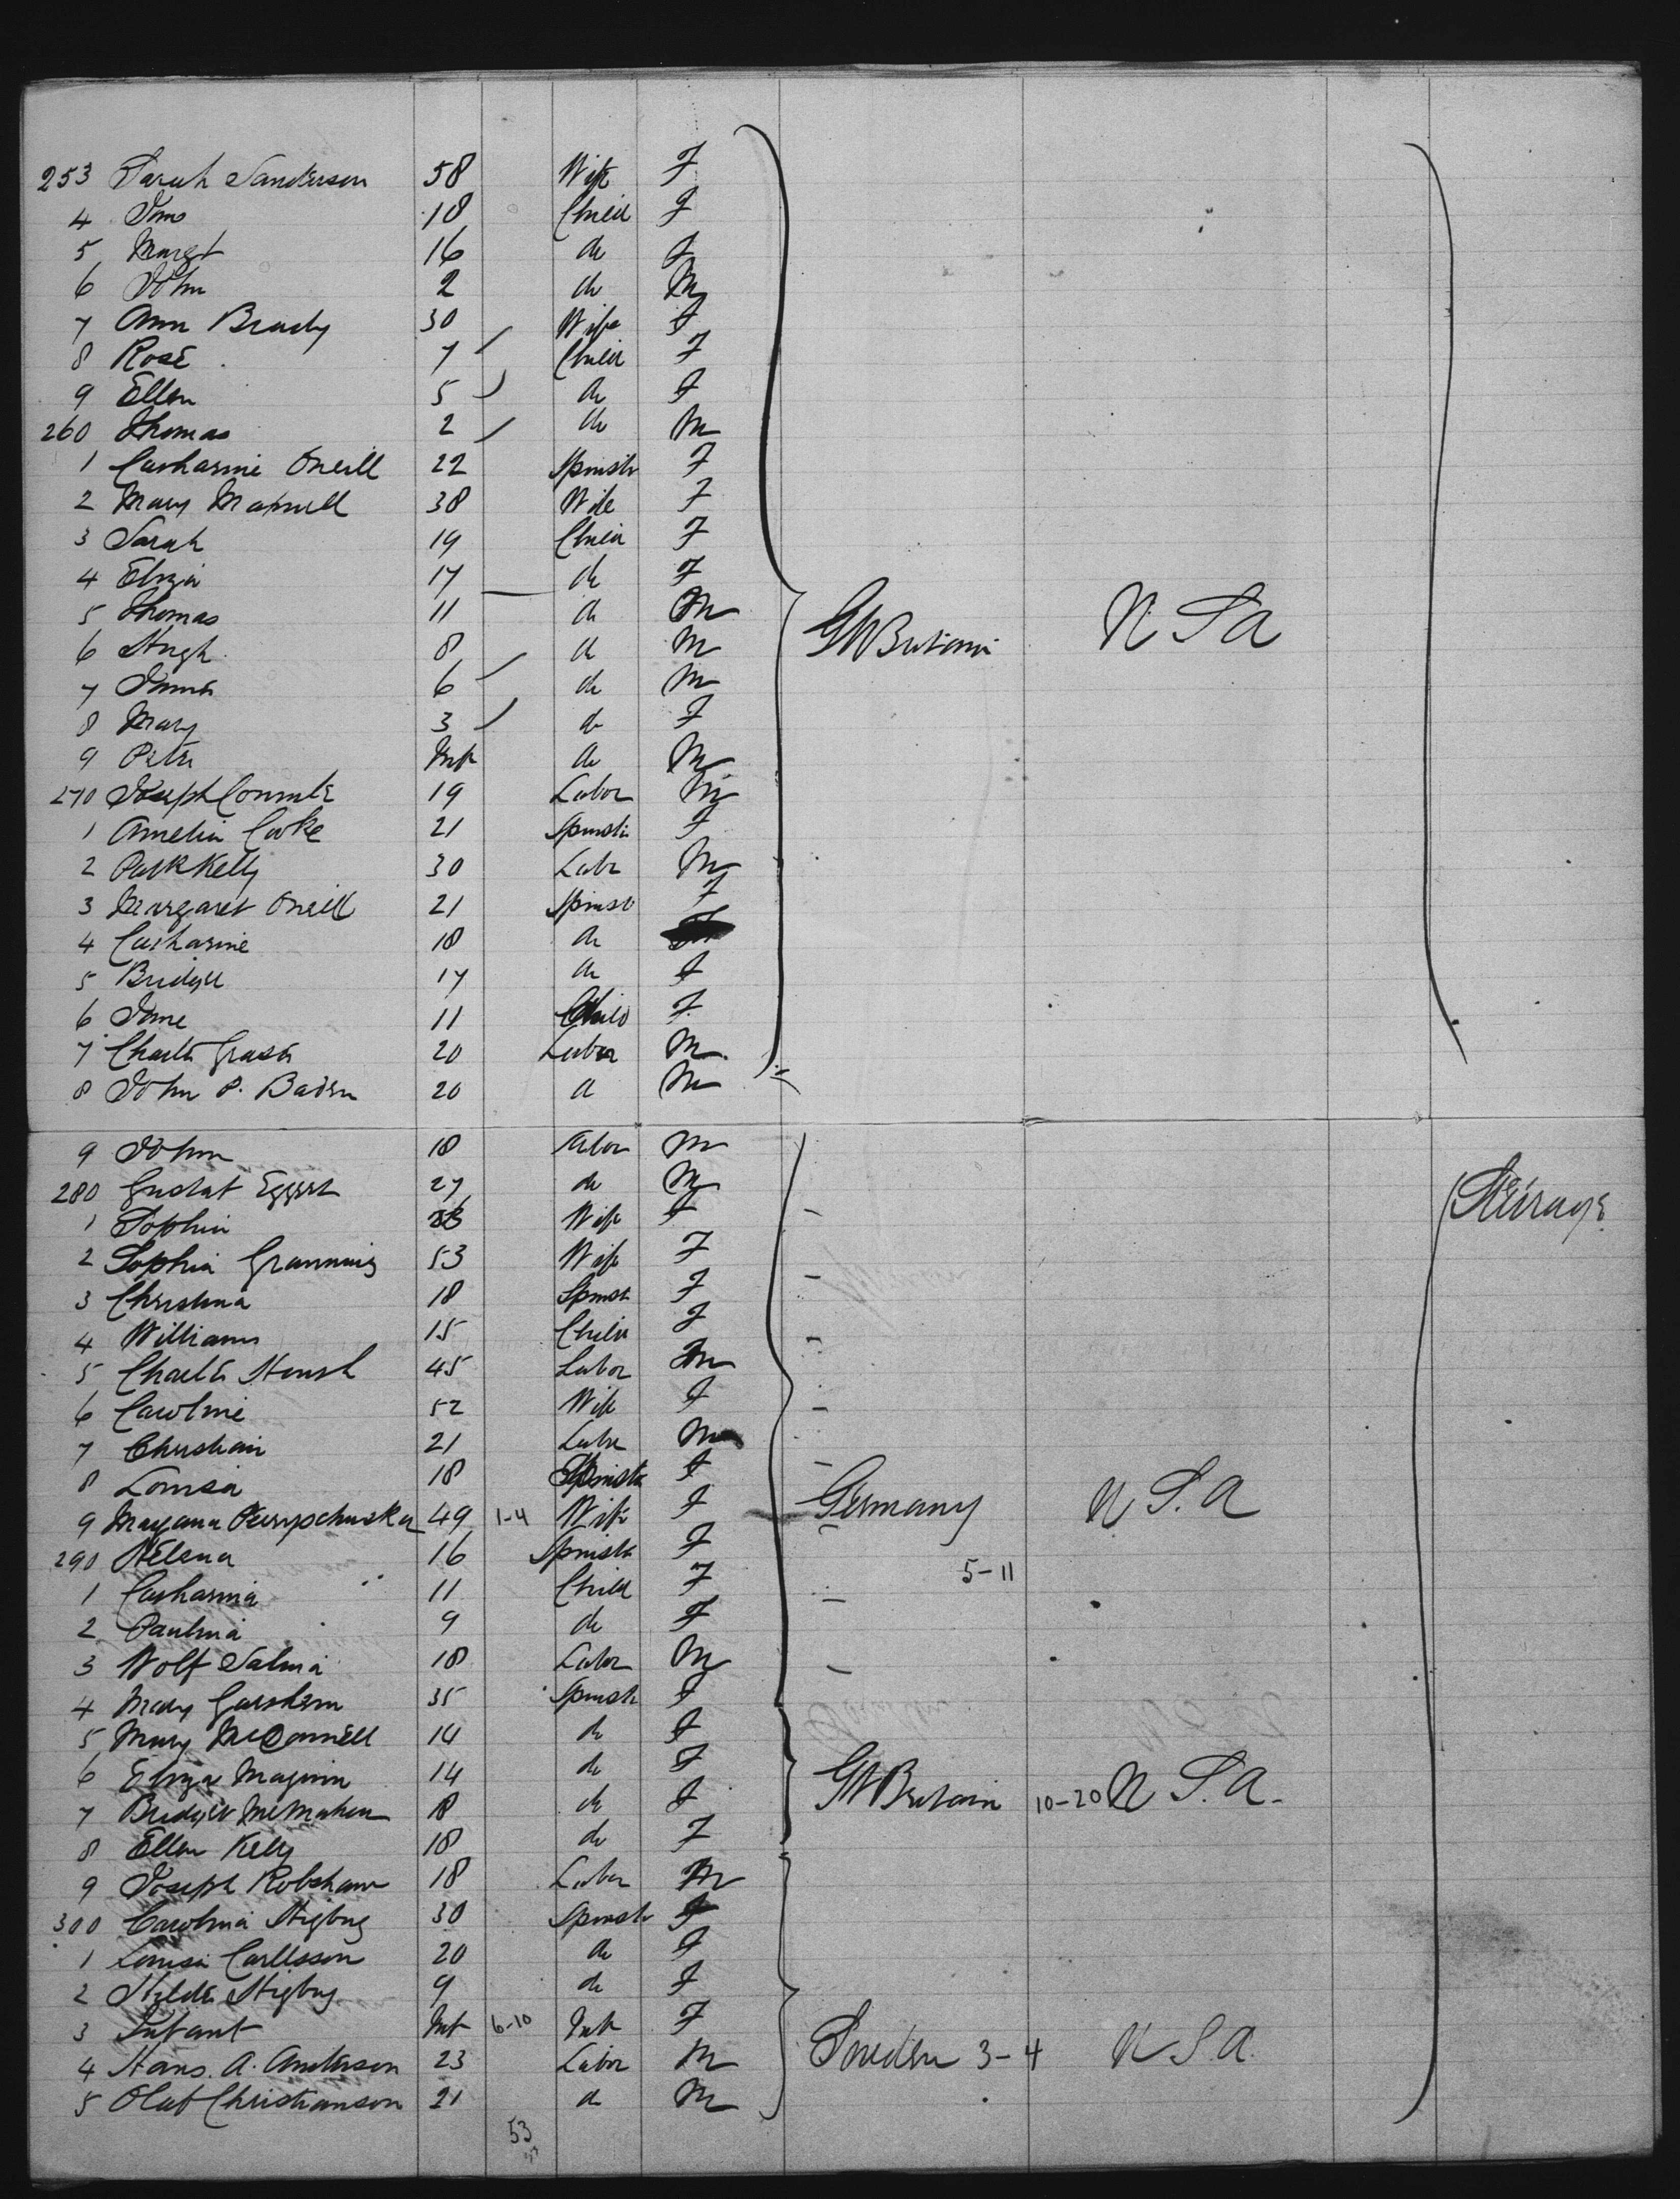 253 Sarah Sanderson 58 Wife F
4 Jane 18 Child F
5 Margt 16 do F
6 John 2 do M
7 Ann Brady 30 Wife F
8 Rose 7 Child F
9 Ellen 5 do F
260 Thomas 2 do M
1 Catharine Oneill 22 Spinstr F
2 Mary Maxwell 38 Wife F
3 Sarah 19 Child F
4 Eliza 17 do F
5 Thomas 11 do M
6 Hugh 8 do M
Gt Britain U S A
7 James 6 do M
8 Mary 3 do F
9 Peter Inft do M
270 Joseph 19 Labor M
1 Amelia Cooke 21 Spinstr F
2 Patk Kelly 30 Labr M
3 Margaret Oneill 21 Spinstr F
4 Catharine 18 do
5 Bridget 17 do F
6 Jane 11 Child F
7 Charles 20 Labor M
8 John P. Baden 20 do M
9 John 18 Labor M
280 Gustat Eggert 27 do M
Steirage
1 Sophia Wife F
2 Sophia Granning 53 Wife F
3 Christina 18 Spinst F
4 William 15 Child F
5 Charles 45 Labor M
6 Caroline 52 Wife F
7 Christian 21 Labr M
8 Louisa 18 Spinstr F
9 Maryanna 49 1-4 Wife F
Germany U S. A
290 Helena 16 Spinstr F
5-11
1 Catharina 11 Child F
2 Paulina 9 do F
3 Wolf Salma 18 Labor M
4 Mary 35 Spinstr F
5 Mary McDonnell 14 do F
6 Eliza Maginn 14 do F
7 Bridget McMahon 18 do F
Gt Britain 10-20 U S. A.
8 Ellen Kelly 18 do F
9 Joseph Robshaw 18 Labor M
300 Carolina Higbug 30 Spinstr F
1 Louisa Carllsson 20 do F
2 Hilda Higbug 9 do F
3 Infant Inft 6-10 Inft F
4 Hans. A. Anderson 23 Labor M
Sweden 3-4 U S. A.
5 Oluf Christianson 21 do M
53